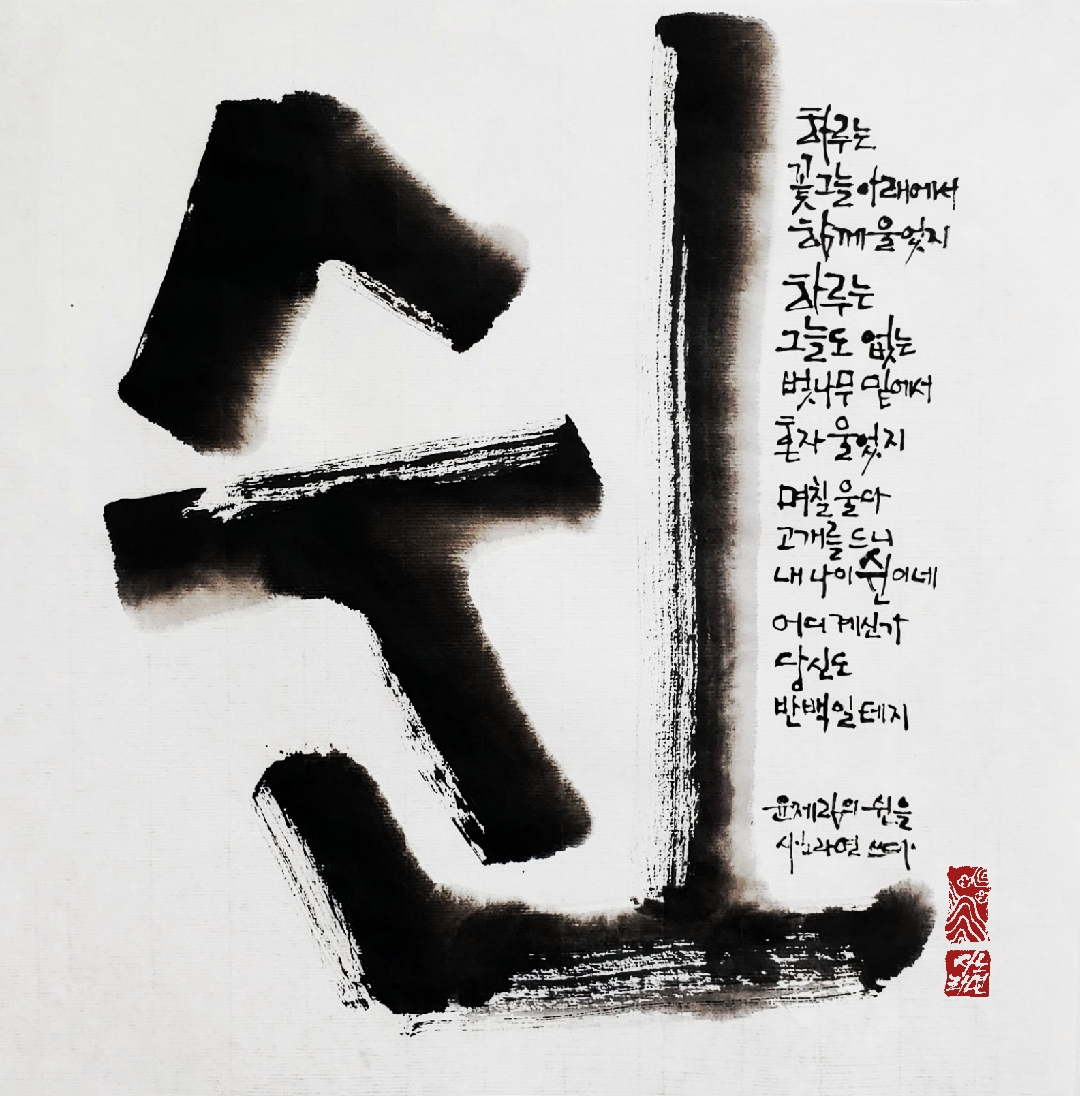 쉰
하루는
꽃그늘 아래에서
함께 울었지
하루는
그늘도 없는
벚나무 밑에서
혼자 울었지
며칠 울다
고개를 드니
내 나이 쉰이네
어디 계신가
당신도
반백일 테지
윤제림의 쉰을
라연 쓰다.
라연